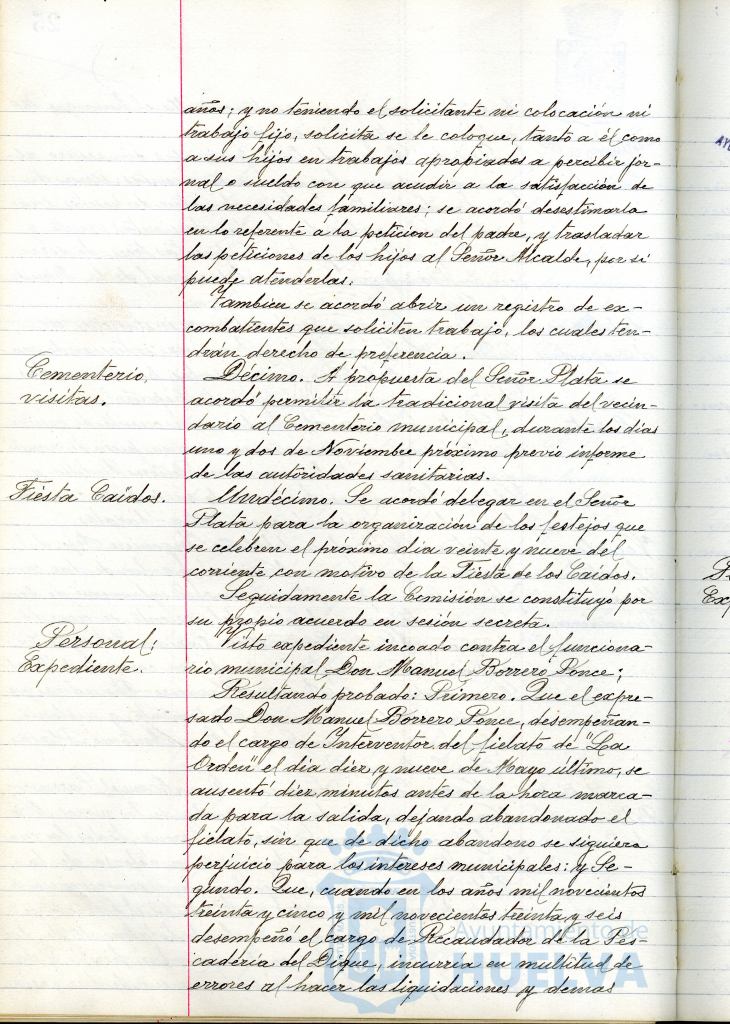 años; y no teniendo el solicitante ni colocación ni
trabajo fijo, solicita se le coloque, tanto a él como
a sus hijos en trabajos apropiados a percibir jor-
nal o sueldo con que acudir a la satisfacción de
las necesidades familiares; se acordó desestimarla
en lo referente á la petición del padre, y trasladar
las peticiones de los hijos al Señor Alcalde, por si
puede atenderlas.
Tambien se acordó abrir un registro de ex-
combatientes que soliciten trabajo, los cuales ten-
drán derecho de preferencia.
Cementerio,
visitas.
Décimo. A propuesta del Señor Plata se
acordó permitir la tradicional visita del vecin-
dario al Cementerio municipal, durante los días
uno y dos de Noviembre próximo previo informe
de las autoridades sanitarias.
Fiesta Caídos.
Undécimo. Se acordó delegar en el Señor
Plata para la organización de los festejos que
se celebren el próximo dia veinte y nueve del
corriente con motivo de la Fiesta de los Caídos.
Seguidamente la Comisión se constituyó por
su propio acuerdo en sesión secreta.
Personal:
Expediente.
Visto expediente incoado contra el funciona-
rio municipal Don Manuel Borrero Ponce;
Resultando probado: Primero. Que el expre-
sado Don Manuel Borrero Ponce, desempeñan-
do el cargo de Interventor del fielato de "La
Orden" el dia diez y nueve de Mayo último, se
ausentó diez minutos antes de la hora marca-
da para la salida, dejando abandonado el
fielato, sin que de dicho abandono se siguiera
perjuicio para los intereses municipales: y Se-
gundo. Que, cuando en los años mil novecientos
treinta y cinco y mil novecientos treinta y seis
desempeñó el cargo de Recaudador de la Pes-
cadería del Dique, incurría en multitud de
errores al hacer las liquidaciones y demas
Ayuntamiento de
HUELVA